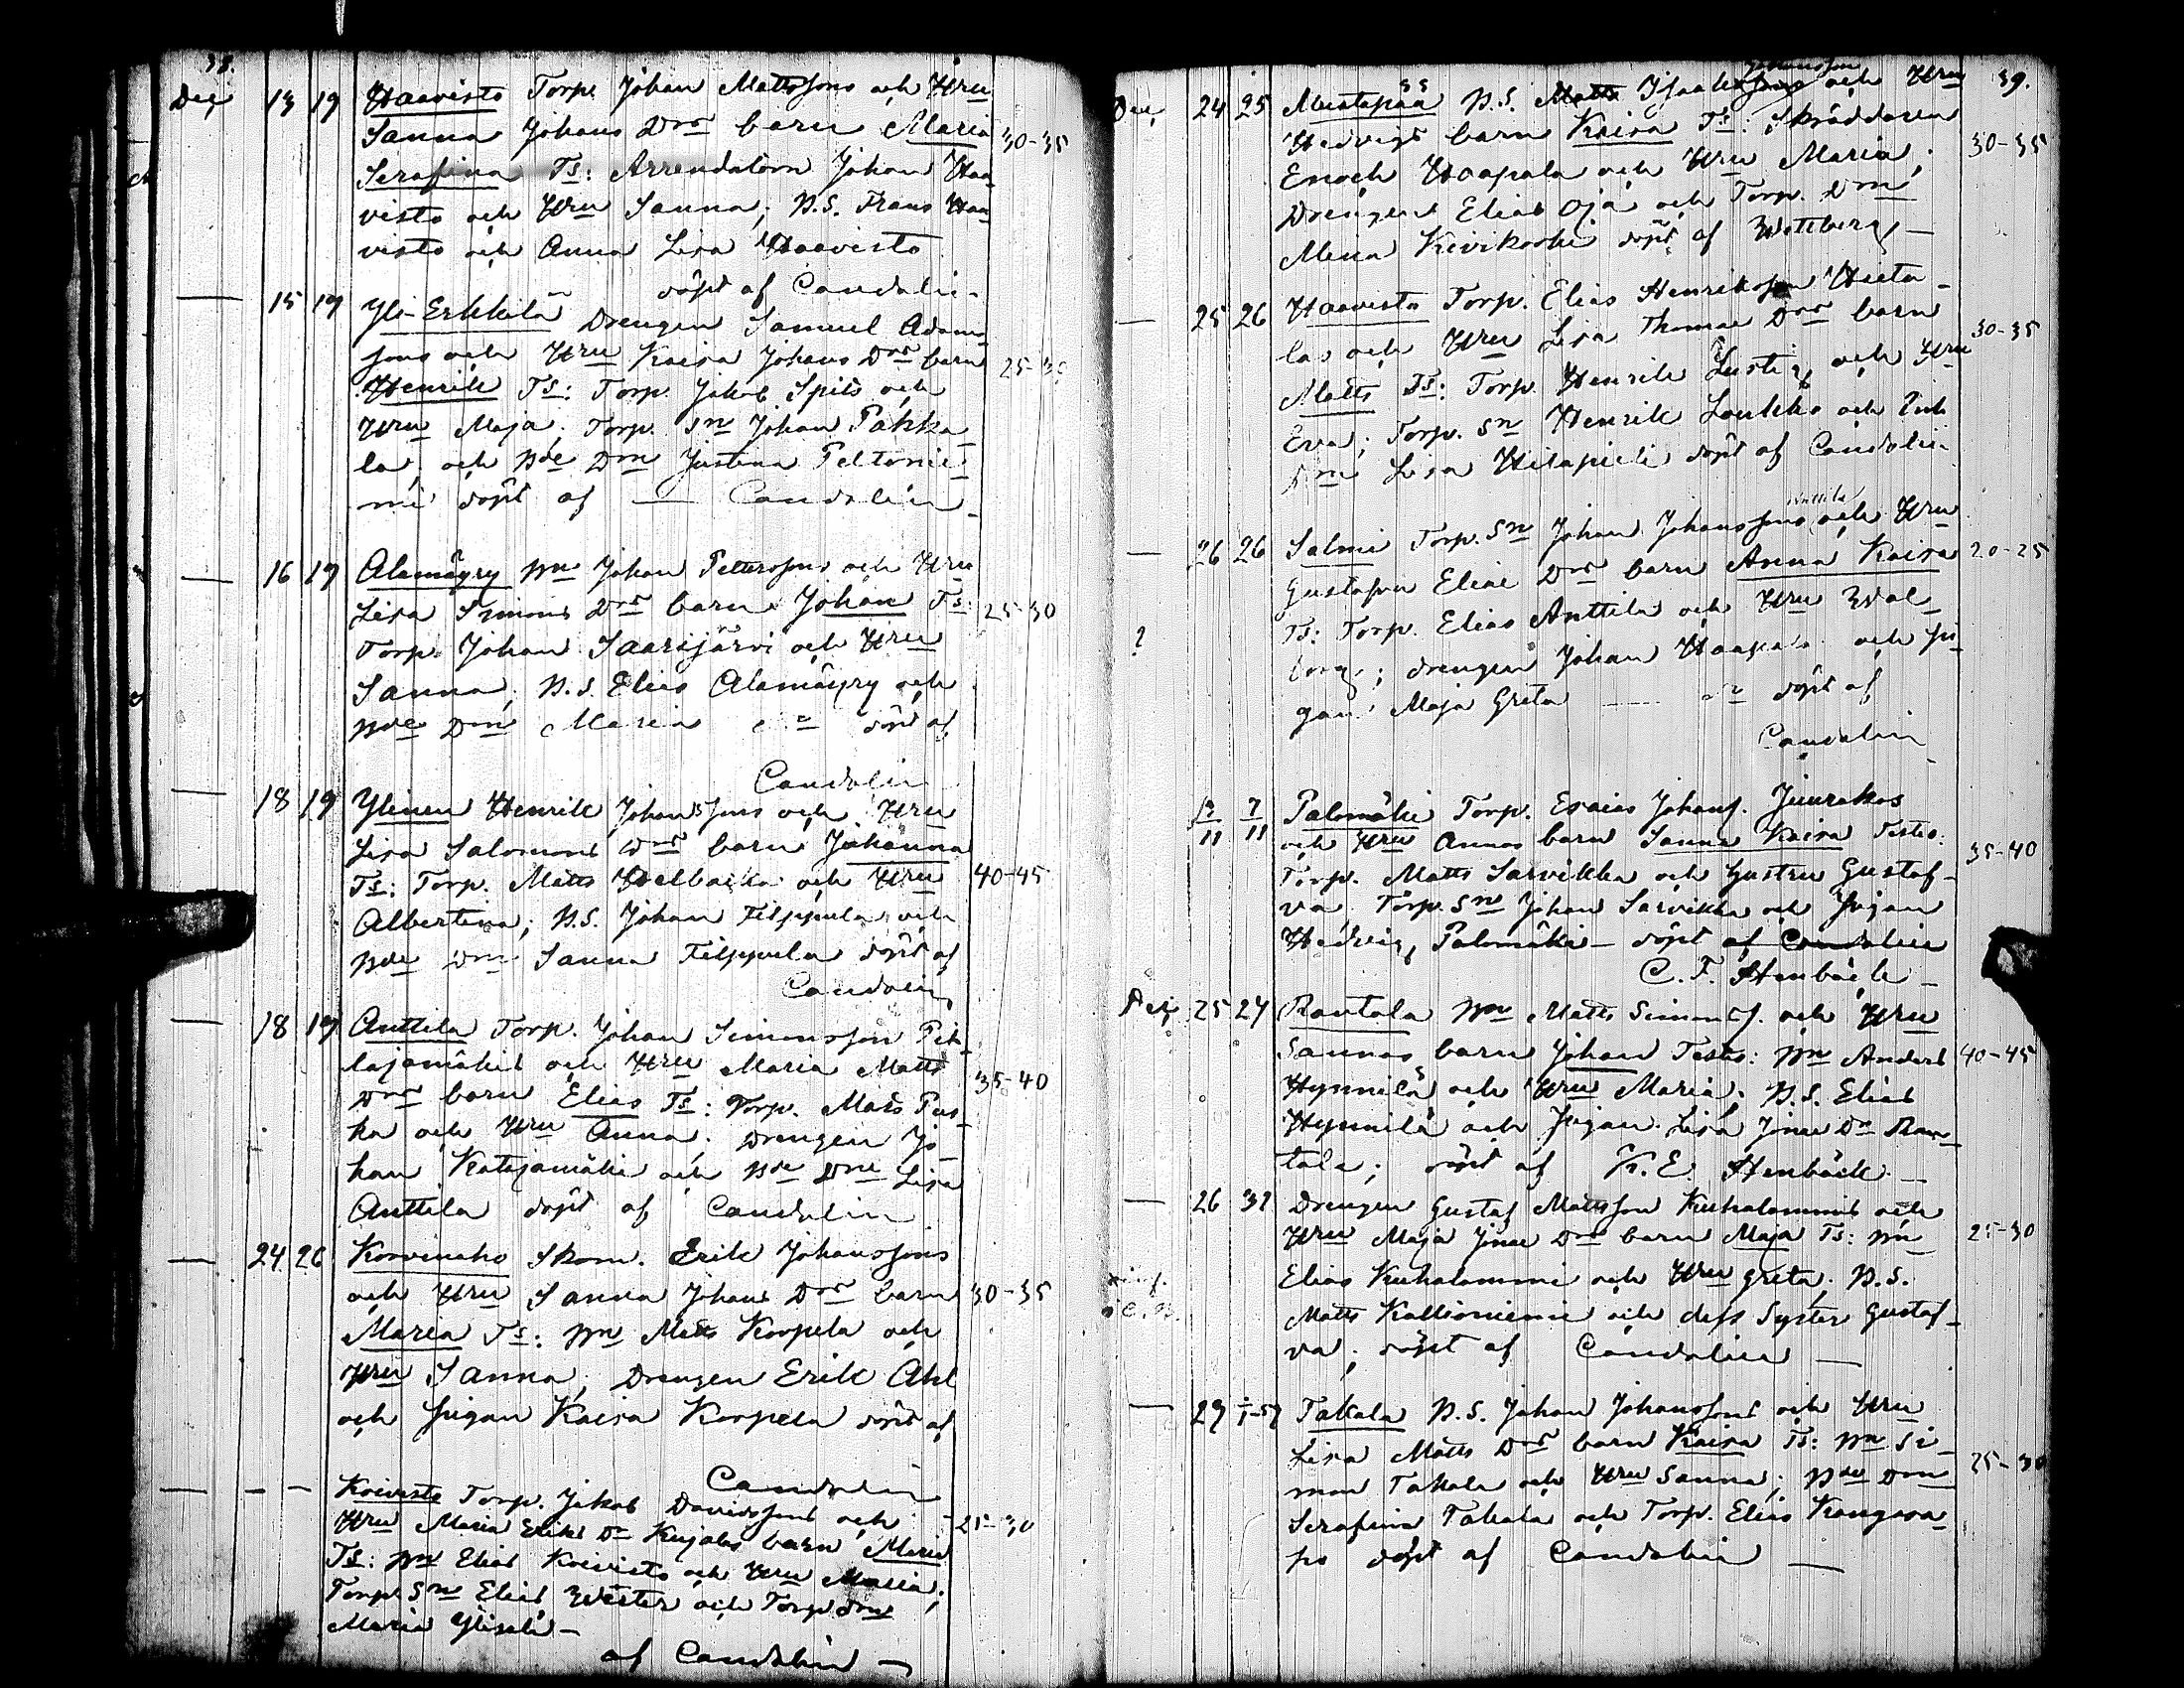 38.
Dec 13 19 Haavisto Torp. Johan Mattssons och Hru
Sanna Johans Drs barn Maria 30-35
Serafina Ts: Arrendatorn Johan Haa-
visto och Hru Sanna; B.S. Frans Haa-
visto och Anna Lisa Haavisto
döpt af Candolin-
— 15 19 Yli-Erkkilä Drengen Samuel Adams-
sons och Hru Kaisa Johans Drs barn 25-30
Henrik Ts: Torp. Jakob Spits och
Hru Maja; Torp. Sn Johan Pakka-
la, och Bde Drn Justina Peltonie-
mi döpt af — Candolin-
— 16 19 Alamäyry Bn Johan Petterssons och Hru
Lisa Simons Drs barn Johan Ts: 25-30
Torp. Johan Saarijärvi och Hru
Sanna; B.S. Elias Alamäyry och
Bde Drn Maria döpt af
Candolin
— 18 19 Ylinen Henrik Johanssons och Hru
Lisa Salomons Drs barn Johanna
Ts: Torp. Matts och Hru 40-45
Albertina; B.S. Johan Filppula och
Bde Drn Sanna Filppula döpt af
Candolin
— 18 19 Anttila Torp. Johan Simonsson Pih-
lajamäkis och Hru Maria Matts
Drs barn Elias Ts: Torp. Mats Pus- 35-40
ka och Hru Anna; Drengen Jo-
han Katajamäki och Bde Drn Lisa
Anttila döpt af Candolin
— 24 26 Korvineho Skom. Erik Johanssons
och Hru Sanna Johans Drs barn 30-35
Maria Ts: Bn Matts Korpela och
Hru Sanna, Drengen Erik Ahl
och pigan Kaisa Korpela döpt af
Candolin
— — — Koivisto Torp. Jakob Davidssons och
Hru Maria Eriks Dr Kujalas barn Maria 25-30
Ts: Bn Elias Koivisto och Hru Maria;
Torp. Sn Elias Wester och Torp drn
Maria
af Candolin —
39.
Dec 24 25 Mustapää B.S. Matts Isakssons Johansson och Hru
Hedvigs barn Kaisa Ts: Skräddaren 30-35
Enoch Haapala och Hru Maria;
Drengen Elias Oja och Torp. Drn
Mina Kivikoski döpt af Wettberg —
— 25 26 Haavisto Torp. Elias Henriksson Hieta-
las och Hru Lisa Thomae Drs barn 30-35
Matts Ts: Torp. Henrik Lustig och Hru
Eva; Torp. Sn Henrik Loukko och Inh
Drn Lisa döpt af Candolin
— 26 26 Salmi Torp. Sn Johan Johanssons Anttila och Hru
Gustafva Eliae Drs barn Anna Kaisa 20-25
Ts: Torp. Elias Anttila och Hru Wal-
? borg; drengen Johan Haapala och pi-
gan Maja Greta döpt af
Candolin
7/11 Palomäki Torp. Esaias Johans. Juurakos
och Hru Annas barn Sanna Kaisa Testes: 35-40
Torp. Matts Sarvikka och Hustru Gustaf-
va, Torp. Sn Johan Sarvikka och Pigan
Hedvig Palomäki — döpt af Candolin
C. F. Stenbäck —
Dec 25 27 Rantala Bn Matts Simonss. och Hru
Sannas barn Johan Testes: Bn Anders 40-45
Hynnilä och Hru Maria; B.S. Elias
Hynnilä och Pigan Lisa Jonae Dr Ran-
tala; döpt af K. E. Stenbäck —
— 26 31 Drengen Gustaf Mattsson Kuhalammis och
Hru Maja Jonae Drs barn Maja Ts: Bn 25-30
Elias Kuhalammi och Hru Greta, B.S.
Matts Kallioniemi och dess Syster Gustaf-
va; döpt af Candolin —
— 29 1/1-57 Takala B.S. Johan Johanssons och Hru
Lisa Matts Drs barn Kaisa Ts: Bn Si- 25-30
mon Takala och Hru Sanna; Bde Drn
Serafina Takala och Torp. Elias Kangasa-
ho döpt af Candolin —